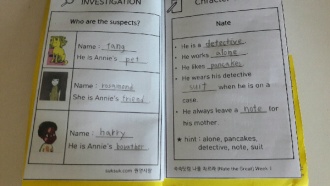 INVESTIGATION
Who are the suspects?
Name : fang
He is Annie's pet
Name : rosamond
She is Annie's friend
Name : harry
He is Annie's brouther
Nate
• He is a detective.
• He works alone.
• He likes pancakes
• He wears his detective
suit when he is on a
case.
• He always leave a note for
his mother.
★ hint : alone, pancakes,
detective, note, suit
(Nate the Great) Week 1